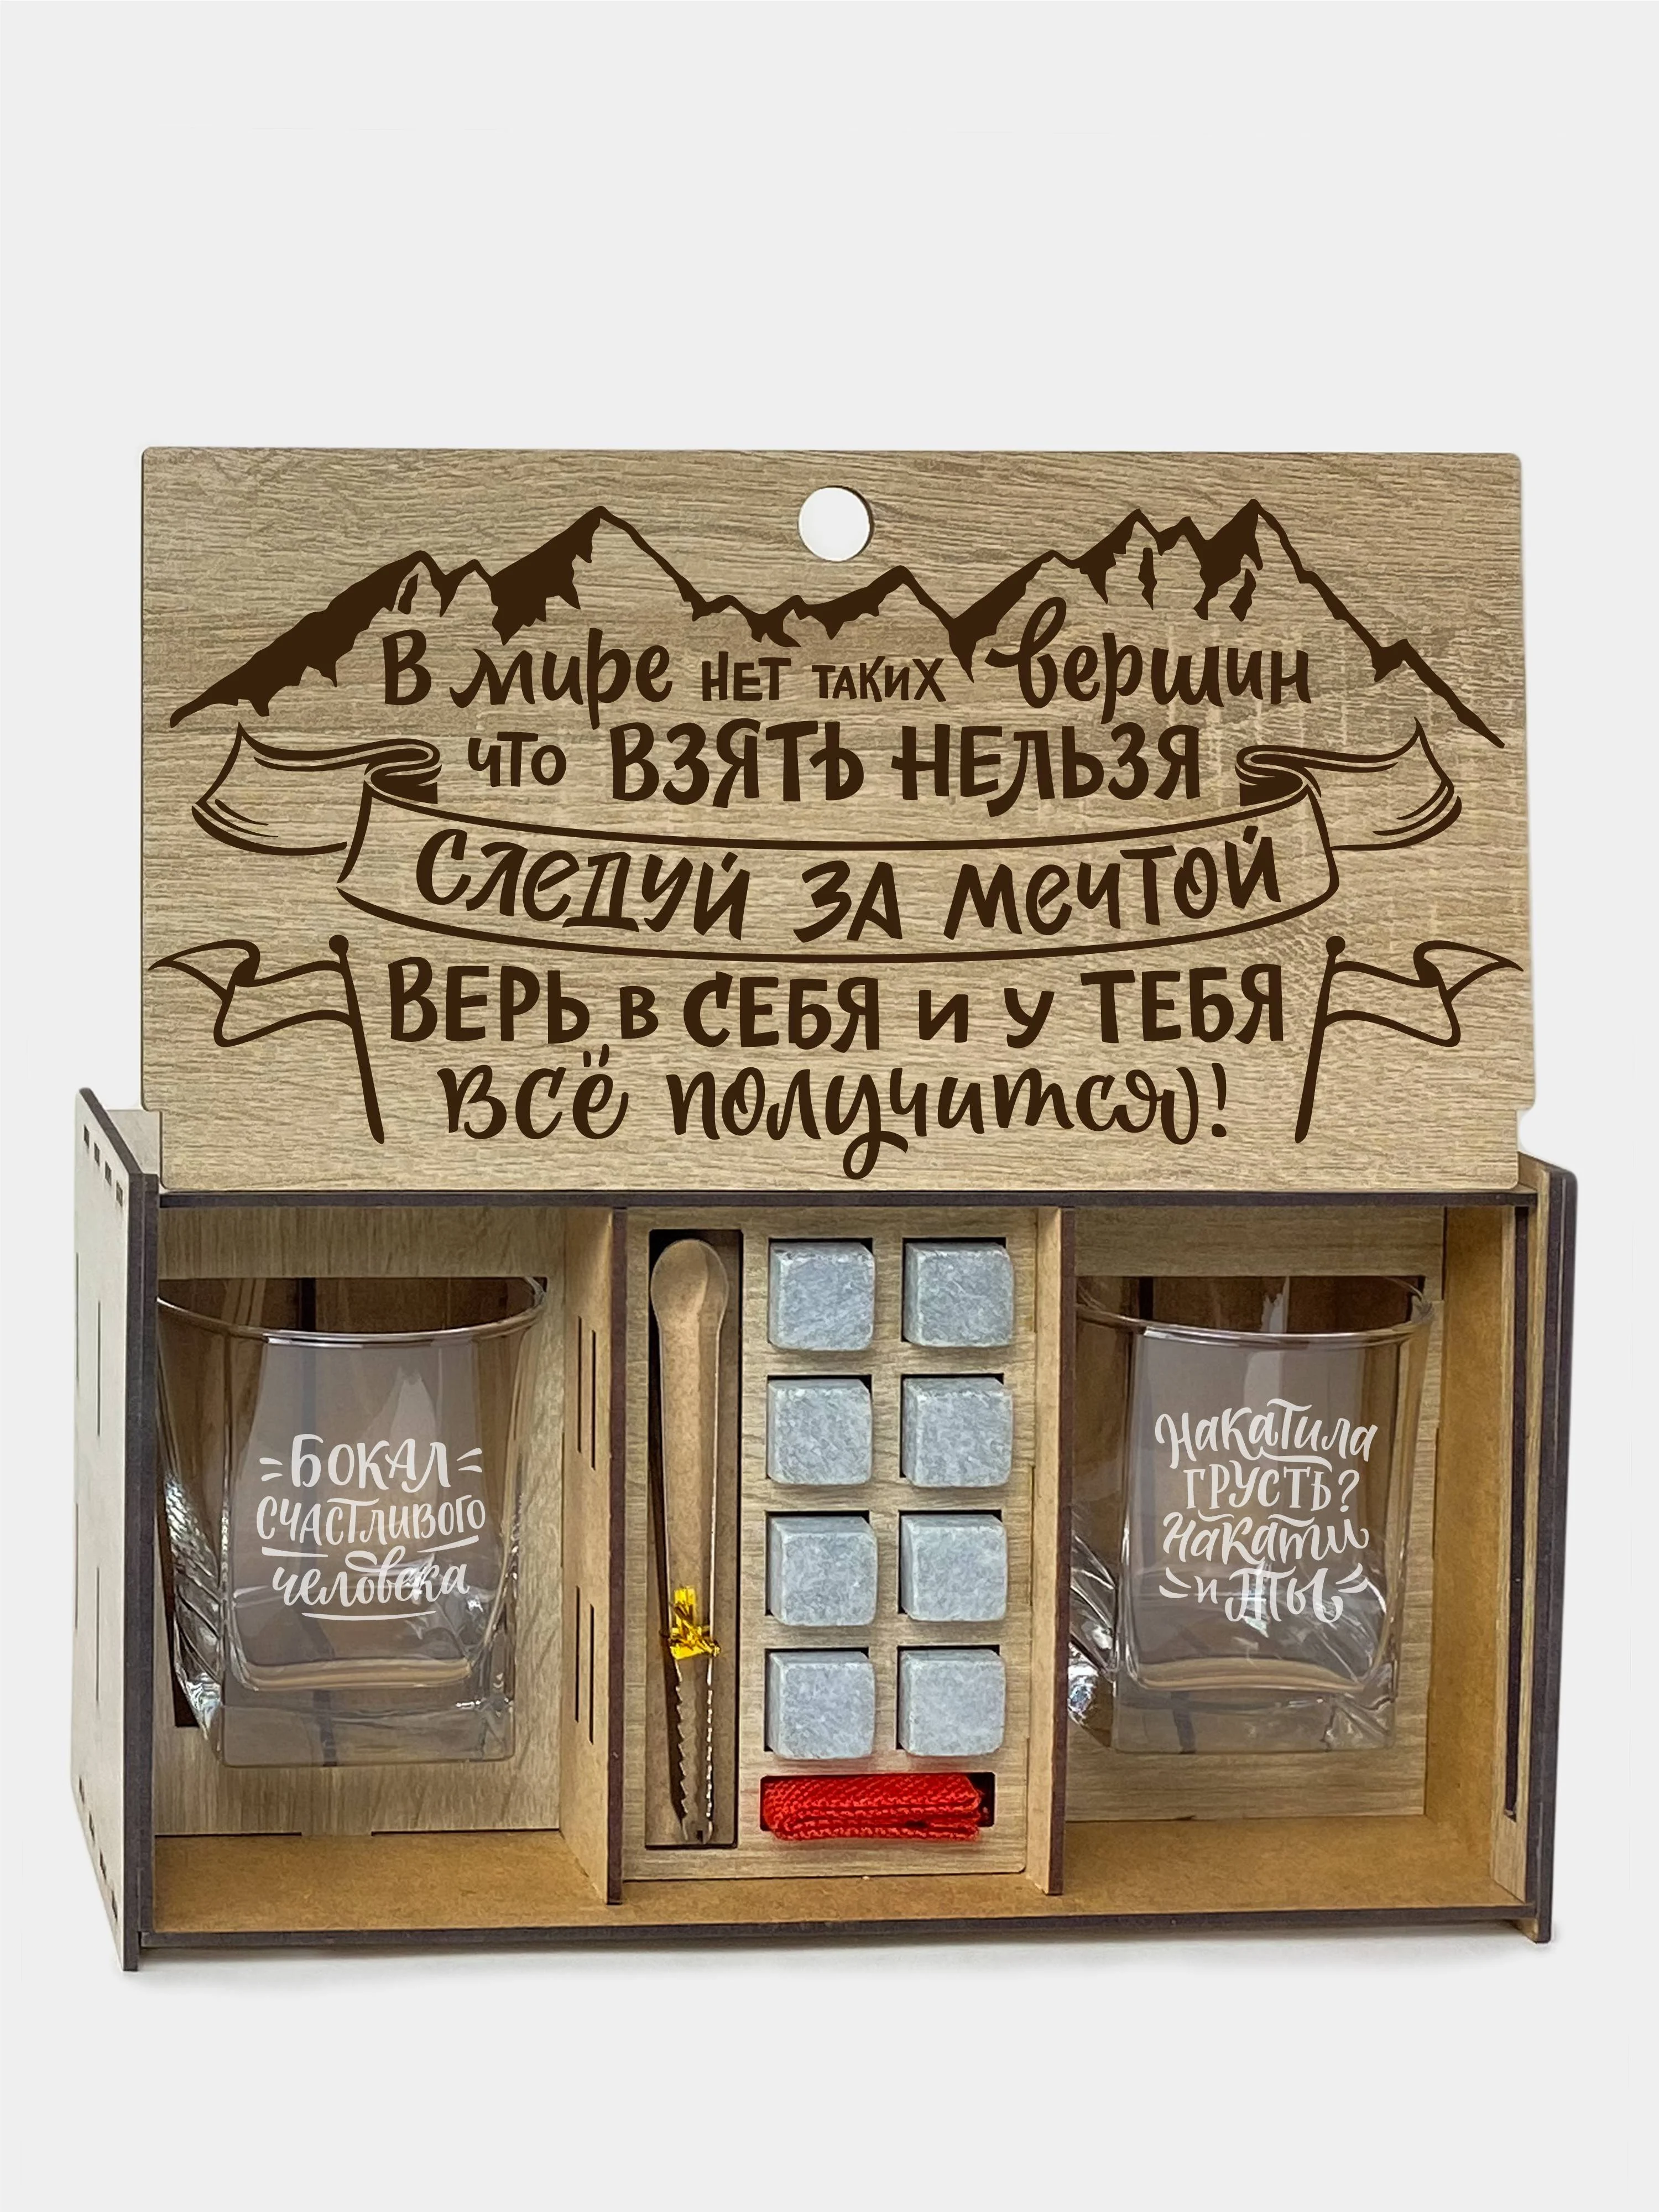 В мире нет таких вершин
что ВЗЯТЬ НЕЛЬЗЯ
СЛЕДУЙ ЗА МЕЧТОЙ
ВЕРЬ в СЕБЯ и у ТЕБЯ
всё получится!
БОКАЛ
СЧАСТЛИВОГО
человека
Накатила
ГРУСТЬ?
Накати
и ты